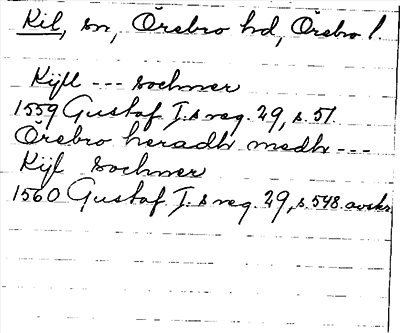 Kil, sn, Örebro hd, Örebro l.
Kijll --- sochner
1559 Gustaf I:s reg. 29, s. 51.
Örebro heradh medh ---
Kijl sochner
1560 Gustaf I:s reg. 29, s. 548. avskr.